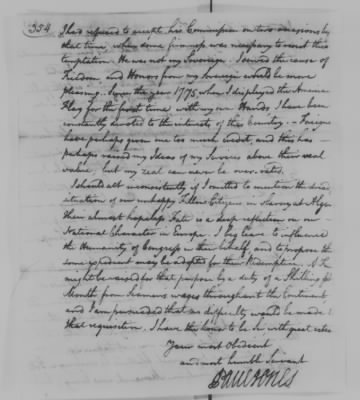 354
I had refused to accept his Commission on two occasions by
that time, when some firmness was necessary to resist this
temptation. He was not my Sovereign. I served the cause of
Freedom and Honors from my Sovereign would be more
pleasing. Since the year 1775 when I displayed the American
Flag for the first time with my own Hands I have been
constantly devoted to the interests of this Country. – Foreigners
have perhaps given me too much credit, and this has –
perhaps raised my Ideas of my Services above their real
value, but my zeal can never be over-rated.
I should act inconsistently if I omitted to mention the
situation of our unhappy Fellow Citizens in Slavery at Algiers
Their almost hopeless Fate is a deep reflection on our –
National Character in Europe. I beg leave to influence
the Humanity of Congress in their behalf, and to propose that
some expedient may be adopted for their Redemption. A
might be raised for that purpose by a duty of a Shilling
Month from Seamens wages throughout the Continent
and I am persuaded that no difficulty would be made to
that requisition. I have the honor to be Sir with great
Your most Obedient
and most humble Servant
Paul Jones